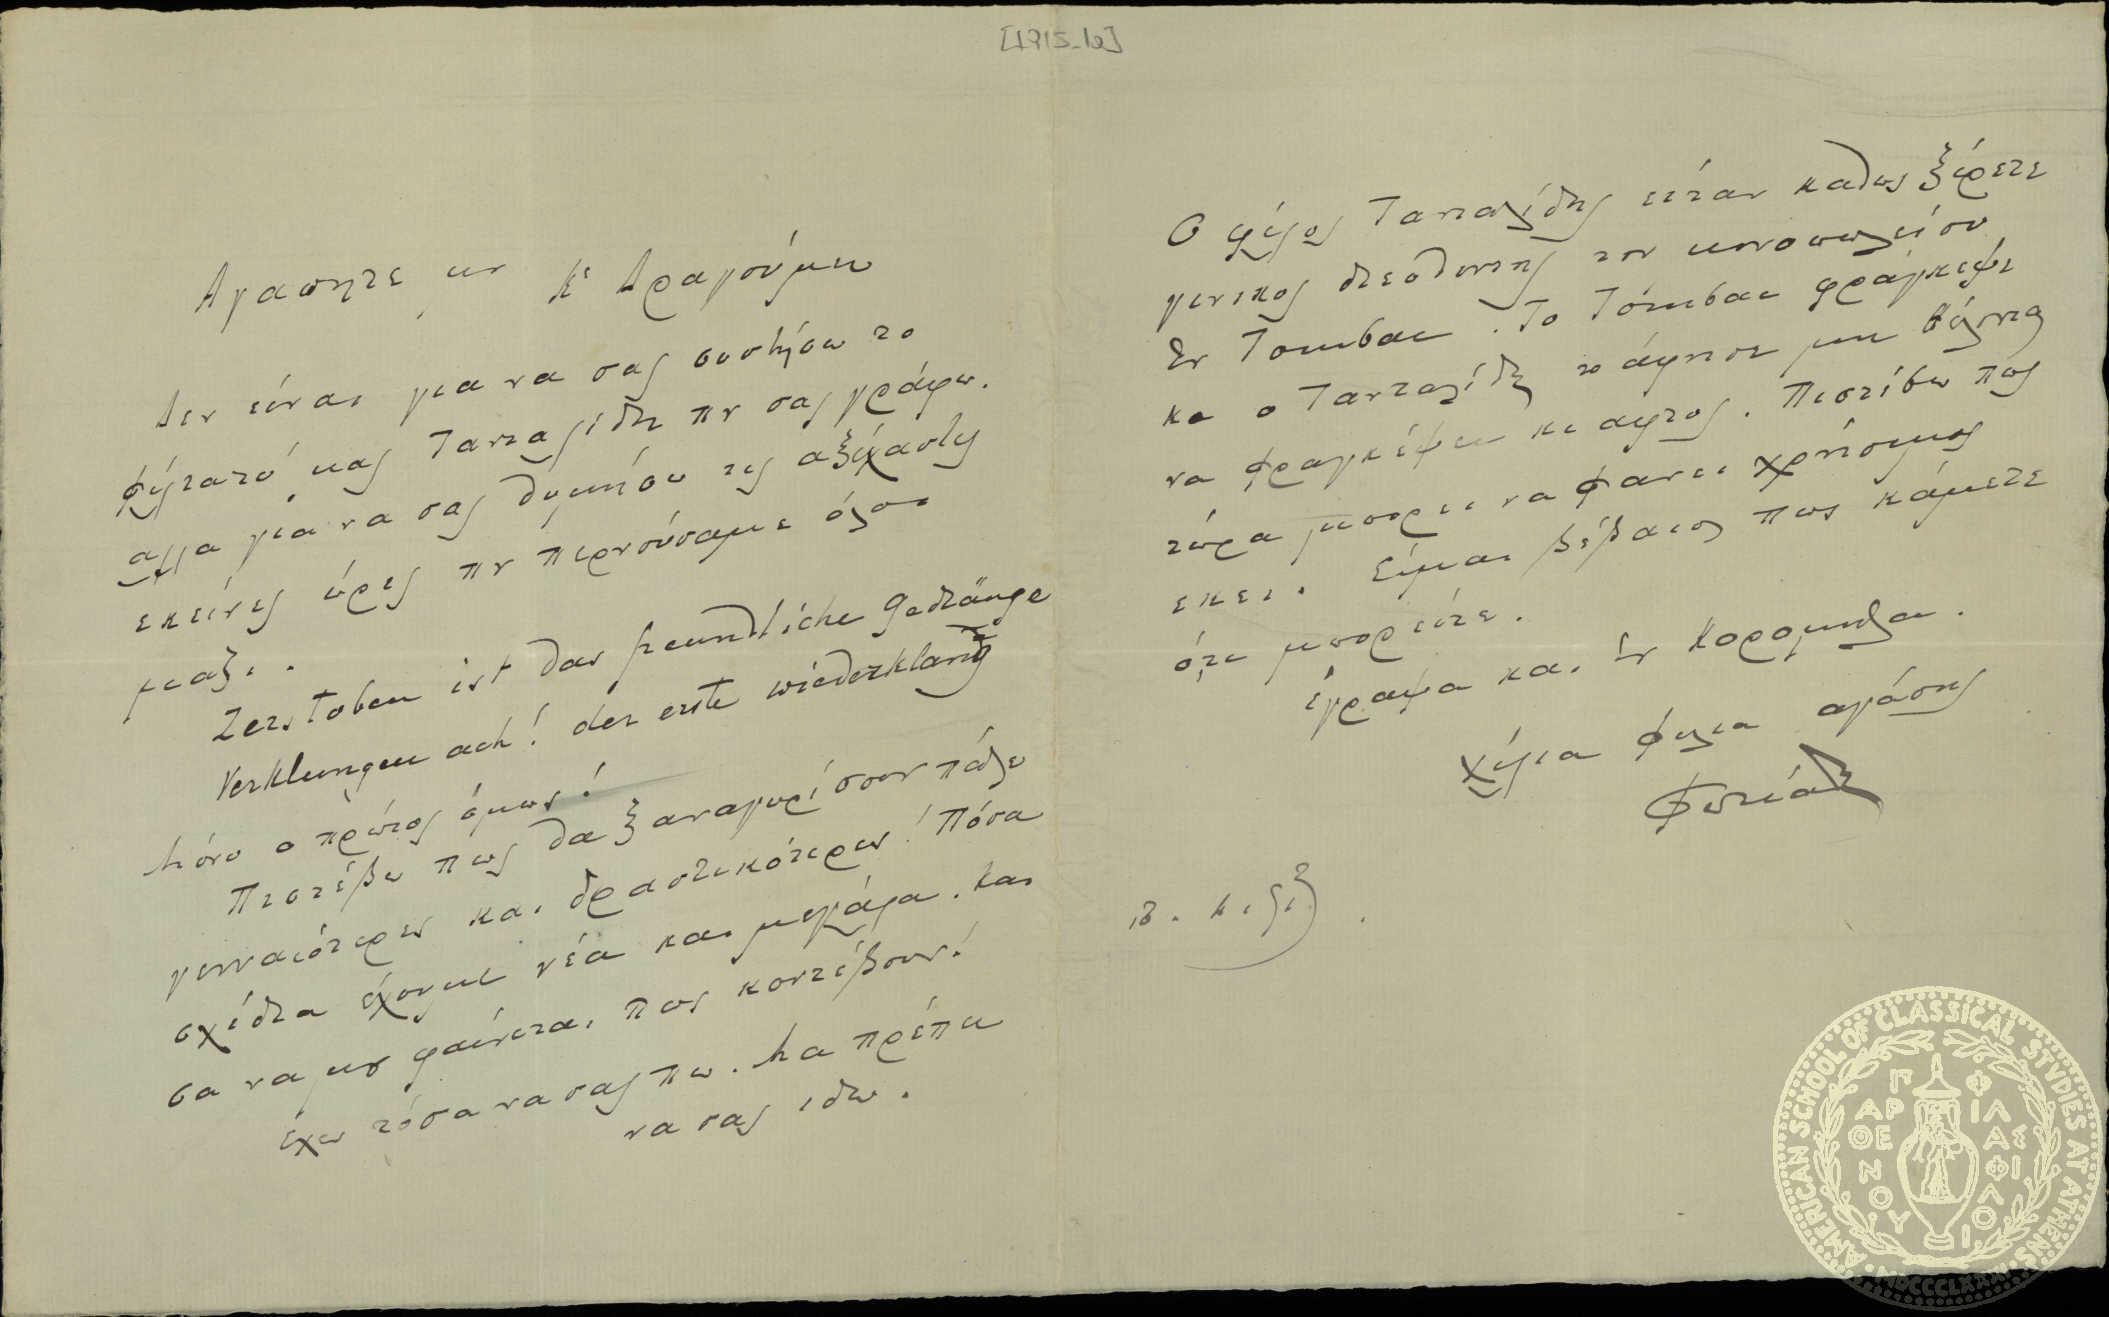 [1915-16]
Αγαπητε μου Κε Δραγούμη
Δεν είναι για να σας συστήσω το
φίλτατό μας Τανταλίδη που σας γράφω.
αλλα για να σας θυμήσω τις αξέχαστες
εκείνες ώρες που περνούσαμε όλοι
μαζι.
Zerstoben ist das freundliche Gedränge
Verklungen ach! der erste wiederklang
Μόνο ο πρώτος όμως!
Πιστέβω πως θα ξαναγυρίσουν πάλι
γενναιότερες και δραστικότερες! Πόσα
σχέδια έχουμε νέα και μεγάλα. Και
σα να μου φαίνεται πως κοντέβουν!
έχω τόσα να σας πω. Μα πρέπει
να σας ιδω.
Ο φίλος Τανταλίδης είταν καθως ξέρετε
γενικος διεοθυντης του μονοπωλείου
του Τουμβακι. Το Τόυμβακι φράγκεψε
κι ο Τανταλίδης το άφησε μη θέλοντας
να φραγκέψει κι αφτος. Πιστέβω πως
τώρα μπορει να φανει χρήσιμος
εκει. Είμαι βέβαιος πως κάμετε
ότι μπορειτε.
έγραψα και του Κορομηλα.
χίλια φιλια αγάπης
Φωτιάδης